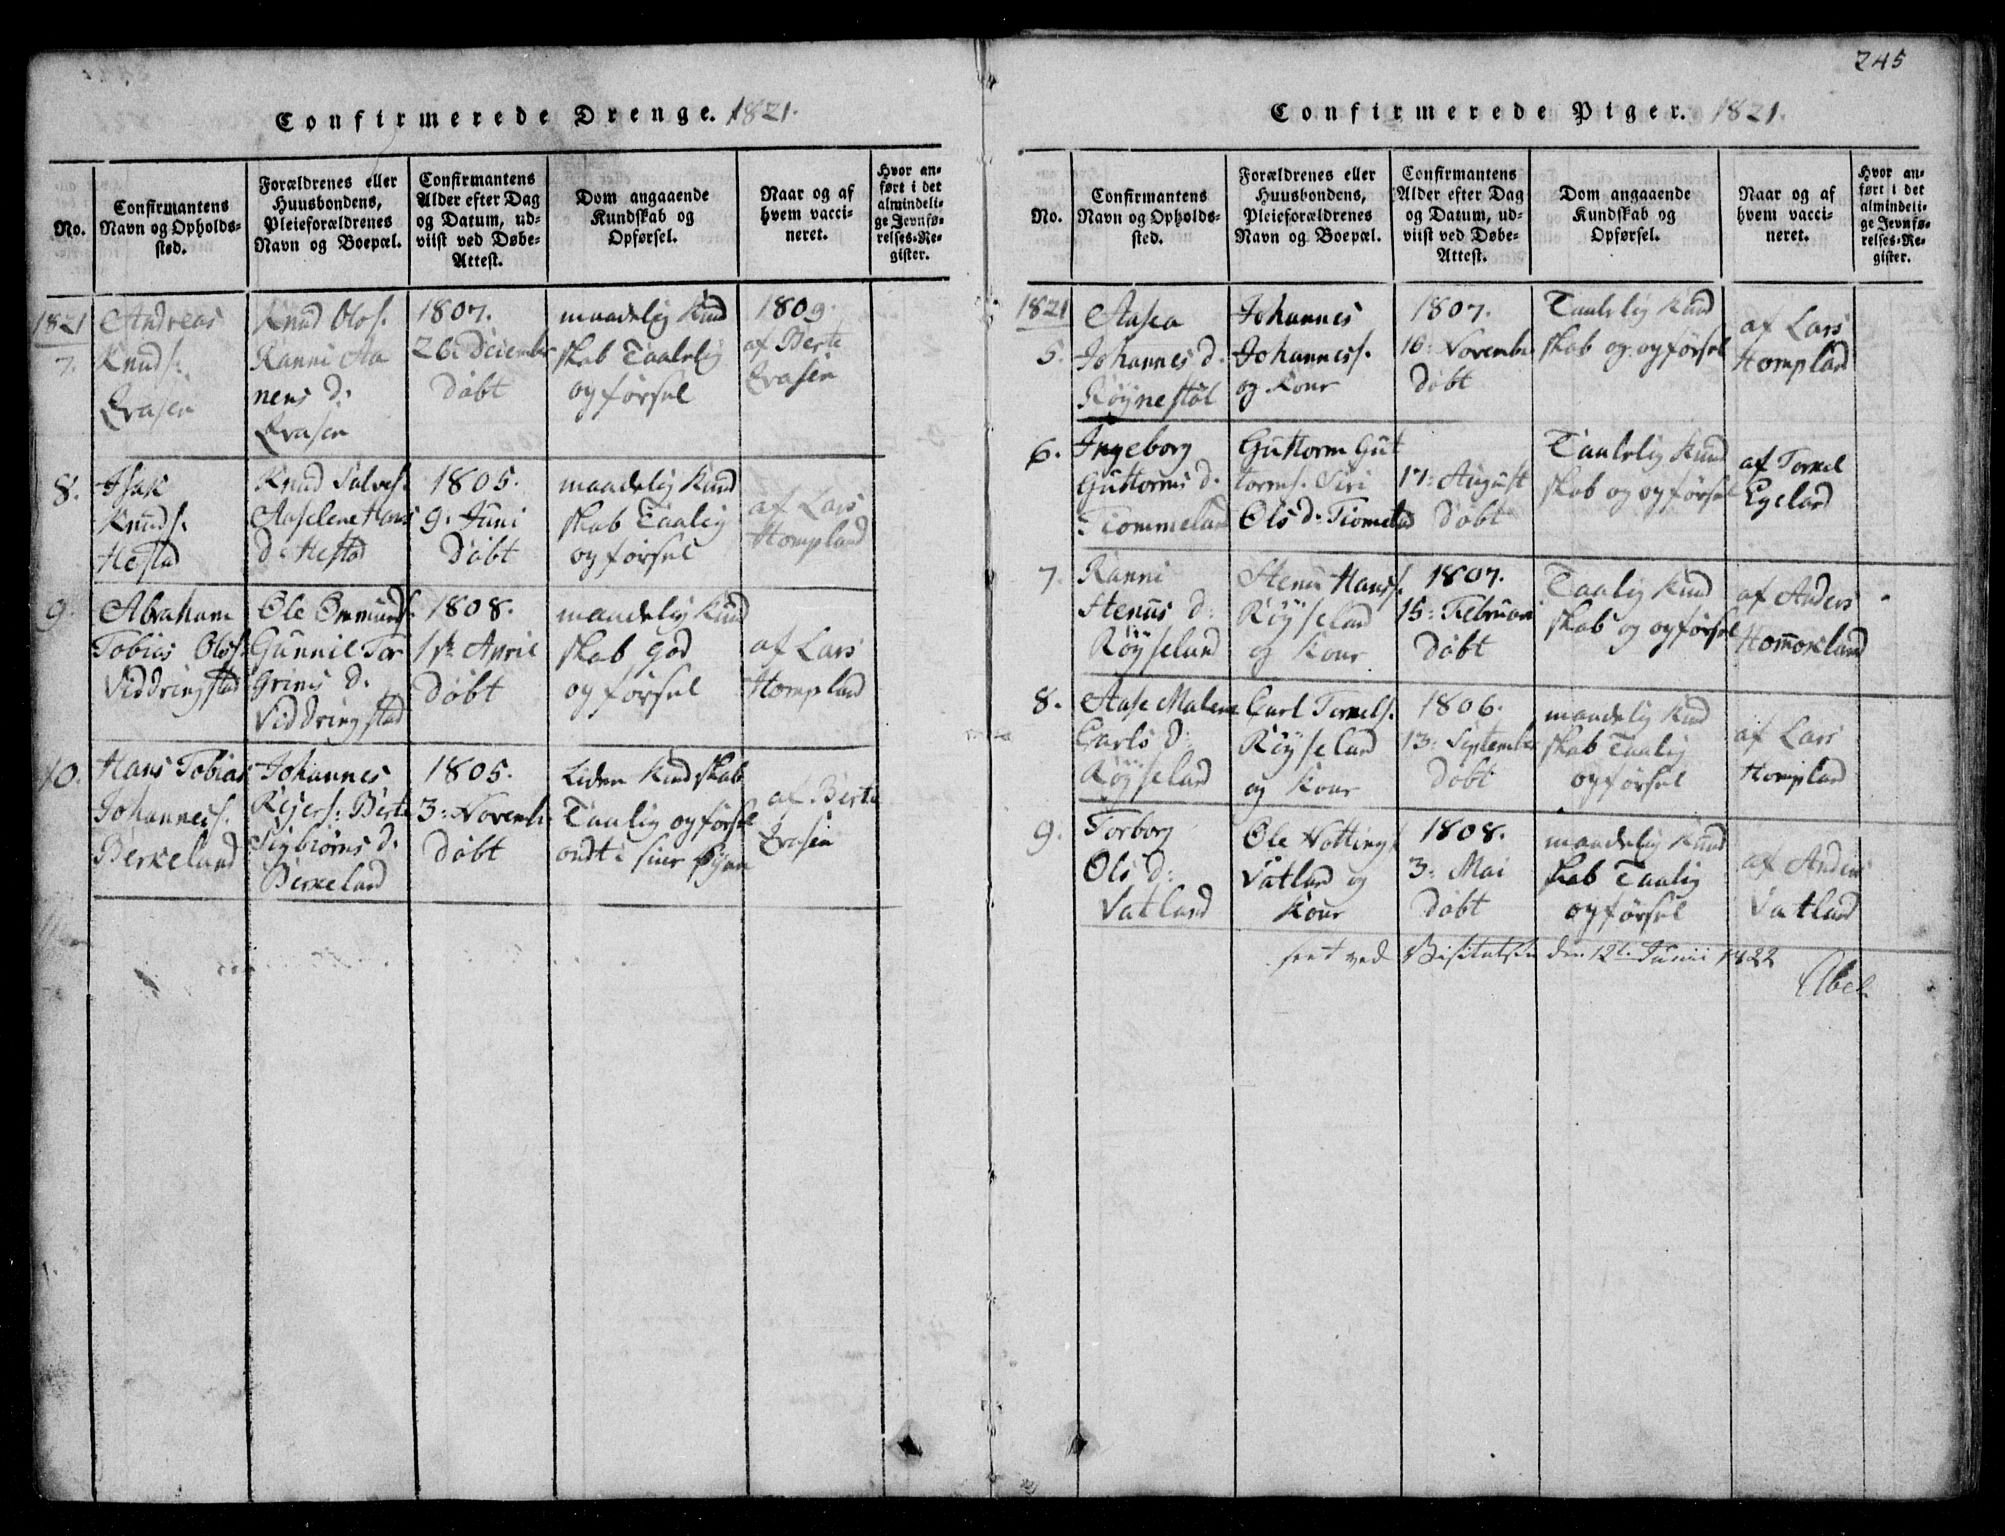 245
Confirmerede Drenge. 1821.
No.
Confirmantens
Navn og Opholds-
sted.
Forældrenes eller
Huusbondens,
Pleieforældrenes
Navn og Boepæl.
Confirmantens
Alder efter Dag
og Datum, ud-
viist ved Døbe-
Attest.
Dom angaaende
Kundskab og
Opførsel.
Naar og af
hvem vacci-
neret.
Hvor an-
ført i det
almindeli-
ge Jevnfø-
relses-Re-
gister.
1821
7.
Andreas
Knuds.
Knud Olos.
Ranni Aa
nens d.
1807.
26. December
døbt
maadelig Kund
skab Taalelig
opførsel
1809.
af Berte
8.
Isak
Knuds.
Hestad
Knud Salves.
Aaselene Hans
D. Hestad
1805.
9. Juni
Døbt
maadelig Kund
skab Taalig
opførsel
af Lars
Hompland
9.
Abraham
Tobias Olos.
Viddringstad
Ole Ommunds.
Gunnil Tor
grims d.
Viddringstad
1808.
1ste April
Døbt
maadelig Kund
skab god
opførsel
af Lars
Hompland
10.
Hans Tobias
Johannes.
Berkeland
Johannes
Rejers. Berte
Sigbiørns d.
Berkeland
1805.
3: Novemb.
Døbt
Liden Kundskab
Taalig opførsel
ondt i sine
af Berte
Confirmerede Piger. 1821.
No.
Confirmantens
Navn og Opholds-
sted.
Forældrenes eller
Huusbondens,
Pleieforældrenes
Navn og Boepæl.
Confirmantens
Alder efter Dag
og Datum, ud-
viist ved Døbe-
Attest.
Dom angaaende
Kundskab og
Opførsel.
Naar og af
hvem vacci-
neret.
Hvor an-
ført i det
almindeli-
ge Jevnfø-
relses-Re-
gister.
1821
5.
Aasea
Johannes d.
Røynestøl
Johannes
Johanness.
og Kone
1807.
10: Novembr
Døbt
Taalelig Kund
skab og opførsel
af Lars
Hompland
6.
Ingeborg
Guttorms d.
Tiommeland
Guttorm Gut
torms. Siri
Ols d. Tiomelad
17: August
døbt
Taalelig Kund
skab og opførsel
af Torkel
Egeland
7.
Ranni
Stenus d:
Røyseland
Stenu Hanss.
Røyseland
og Kone
1807.
15: Februari
Døbt
Taalig Kund
skab og opførsel
af Anders
Homoxland
8.
Aase Malene
Carls d:
Røyseland
Carl Torkels.
Røyseland
og Kone
1806.
13: September
Døbt
maadelig Kund
skab Taalig
opførsel
af Lars
Hompland
9.
Torborg
Ols d:
Vatland
Ole
Vatland og
Kone
1808.
3: Mai
døbt
maadelig Kund
skab Taalig
opførsel
af Anders
Vatland
seet ved Visitatsen den 12te Junii 1822